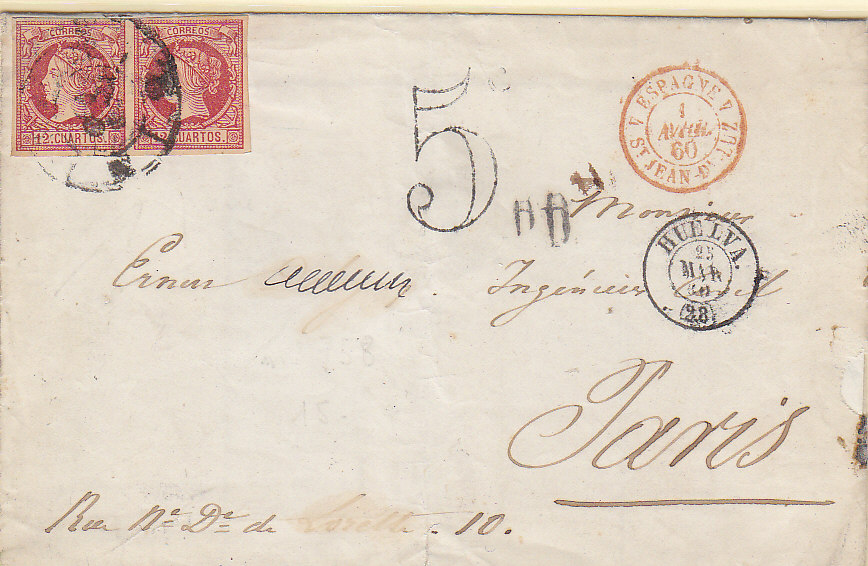 CORREOS CORREOS
12. CUARTOS. 12. CUARTOS.
5 c
ESPAGNE
1
AVRIL
60
ST JEAN-D- LUZ
Monsieur
HUELVA.
25
MAR
60
(28)
Ingénieur Civil
Paris
Rue Ne. De. de Lorette. 10.